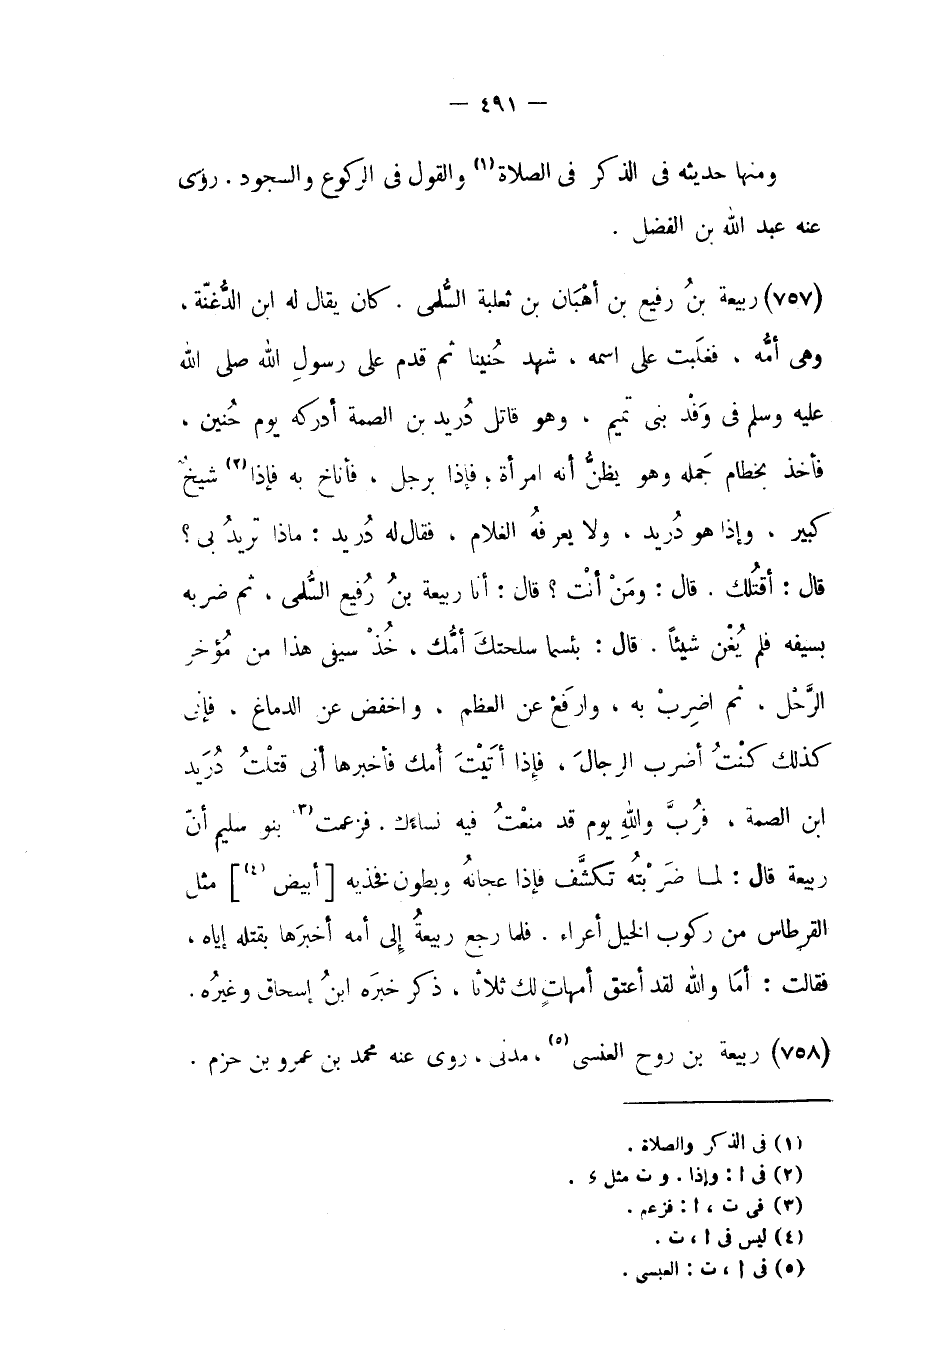 — ٤٩١ —
ومنها حديثه فى الذكر فى الصلاة(١) والقول فى الركوع والسجود . رؤى
عنه عبد الله بن الفضل .
(٧٥٧) ربيعة بنُ رفيع بن أهْبَان بن ثعلبة السُّلمى . كان يقال له ابن الدُّغنّة ،
وهى أمُّه ، فغلَبت على اسمه ، شهد حُنينا ثم قدم على رسولِ الله صلى الله
عليه وسلم فى وَفْد بنى تميم ، وهو قاتل دُريد بن الصمة أدركه يوم حُنين ،
فأخذ بخطام جَمله وهو يظنُّ أنه امرأة ، فإذا برجل ، فأناخ به فإذا(٢) شيخٌ
كبير ، وإذا هو دُريد ، ولا يعرفهُ الغلام ، فقال له دُريد : ماذا تريدُ بى ؟
قال : أقتُلك . قال : ومَنْ أنْت ؟ قال : أنا ربيعة بنُ رُفيع السُّلمى ، ثم ضربه
بسيفه فلم يُغْن شيئاً . قال : بئسما سلحتكَ أمُّك ، خُذْ سيفى هذا من مُؤخر
الرَّحْل ، ثم اضرِبْ به ، وارفَعْ عن العظم ، واخفض عن الدماغ ، فإنى
كذلك كنْتُ أضرب الرجالَ ، فإذا أتَيْتَ أمك فأخبرها أنى قتلْتُ دُرَيد
ابن الصمة ، فرُبَّ واللهِ يوم قد منعْتُ فيه نساءك . فزعمت(٣) بنو سليم أنّ
ربيعة قال : لما ضَرَبْتهُ تكشَّف فإذا عجانهُ وبطون فخذيه [ أبيض (٤) ] مثل
القرطاس من ركوب الخيل أعراء . فلما رجع ربيعةُ إلى أمه أخبرَها بقتله إياه ،
فقالت : أمَا والله لقد أعتق أمهاتٍ لك ثلاثا ، ذكر خبرَه ابنُ إسحاق وغيرُه .
(٧٥٨) ربيعة بن روح العنسى(٥) ، مدنى ، روى عنه محمد بن عمرو بن حزم .
(١) فى الذكر والصلاة .
(٢) فى ا : وإذا . و ت مثل ء .
(٣) فى ت ، ا : فزعم .
(٤) ليس فى أ ، ت .
(٥) فى أ ، ت : العبسى .